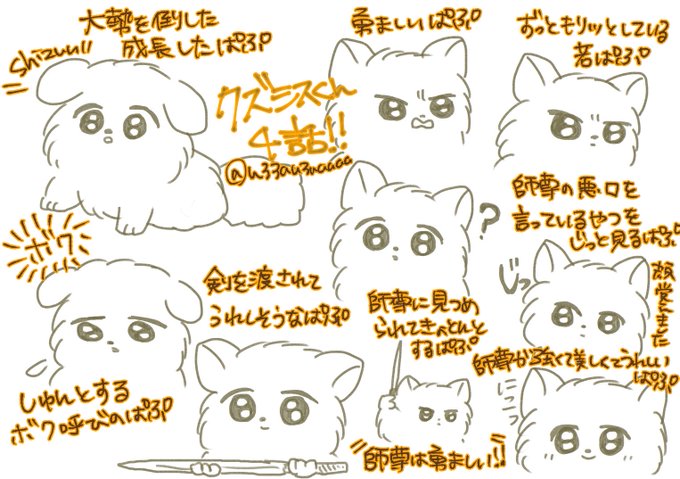 大勢を倒した
成長したぱぷ
Shizuu!!
クズラスくん
4話!!
勇ましいぱぷ
ずっともりッとしている
若ぱぷ
師尊の悪口を
言っているやつを
じっと見るぱぷ
?
ボク
剣を渡されて
うれしそうなぱぷ
師尊に見つめ
られてきょとんと
するぱぷ
じっ
顔覚えました
しゅんとする
ボク呼びのぱぷ
師尊が強くて美しくてうれしい
ぱぷ
師尊は勇ましい!!